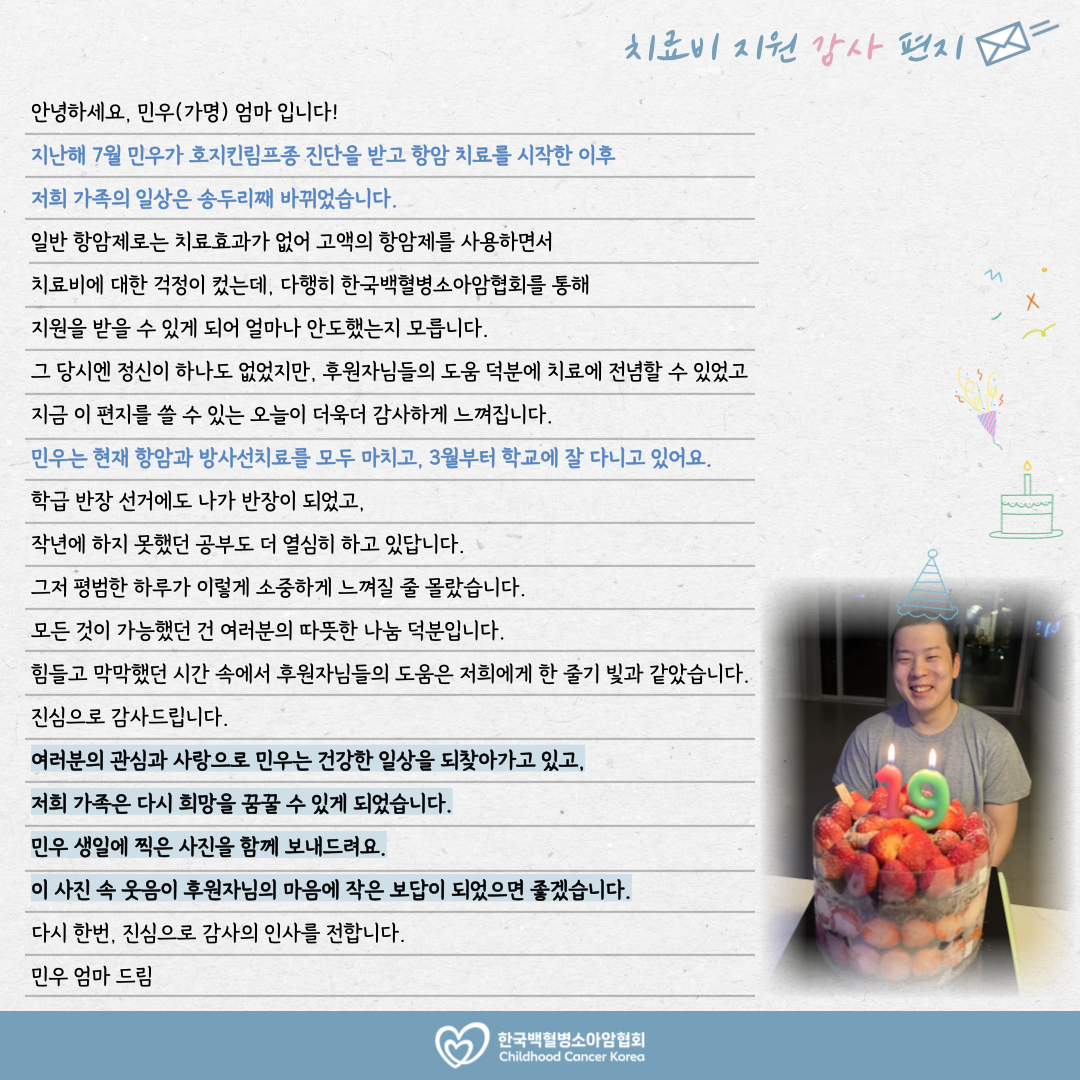 치료비 지원 감사 편지
안녕하세요, 민우(가명) 엄마 입니다!
지난해 7월 민우가 호지킨림프종 진단을 받고 항암 치료를 시작한 이후
저희 가족의 일상은 송두리째 바뀌었습니다.
일반 항암제로는 치료효과가 없어 고액의 항암제를 사용하면서
치료비에 대한 걱정이 컸는데, 다행히 한국백혈병소아암협회를 통해
지원을 받을 수 있게 되어 얼마나 안도했는지 모릅니다.
그 당시엔 정신이 하나도 없었지만, 후원자님들의 도움 덕분에 치료에 전념할 수 있었고
지금 이 편지를 쓸 수 있는 오늘이 더욱더 감사하게 느껴집니다.
민우는 현재 항암과 방사선치료를 모두 마치고, 3월부터 학교에 잘 다니고 있어요.
학급 반장 선거에도 나가 반장이 되었고,
작년에 하지 못했던 공부도 더 열심히 하고 있답니다.
그저 평범한 하루가 이렇게 소중하게 느껴질 줄 몰랐습니다.
모든 것이 가능했던 건 여러분의 따뜻한 나눔 덕분입니다.
힘들고 막막했던 시간 속에서 후원자님들의 도움은 저희에게 한 줄기 빛과 같았습니다.
진심으로 감사드립니다.
여러분의 관심과 사랑으로 민우는 건강한 일상을 되찾아가고 있고,
저희 가족은 다시 희망을 꿈꿀 수 있게 되었습니다.
민우 생일에 찍은 사진을 함께 보내드려요.
이 사진 속 웃음이 후원자님의 마음에 작은 보답이 되었으면 좋겠습니다.
다시 한번, 진심으로 감사의 인사를 전합니다.
민우 엄마 드림
19
한국백혈병소아암협회
Childhood Cancer Korea